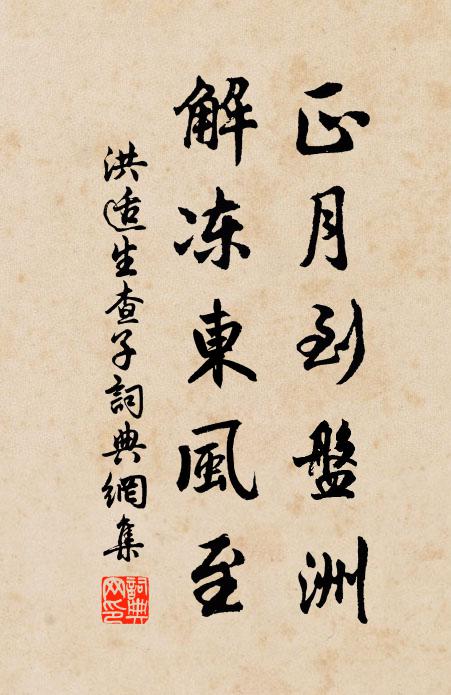 正月到盤洲
解冻東風至
洪适生查子詞典網集
詞典网印